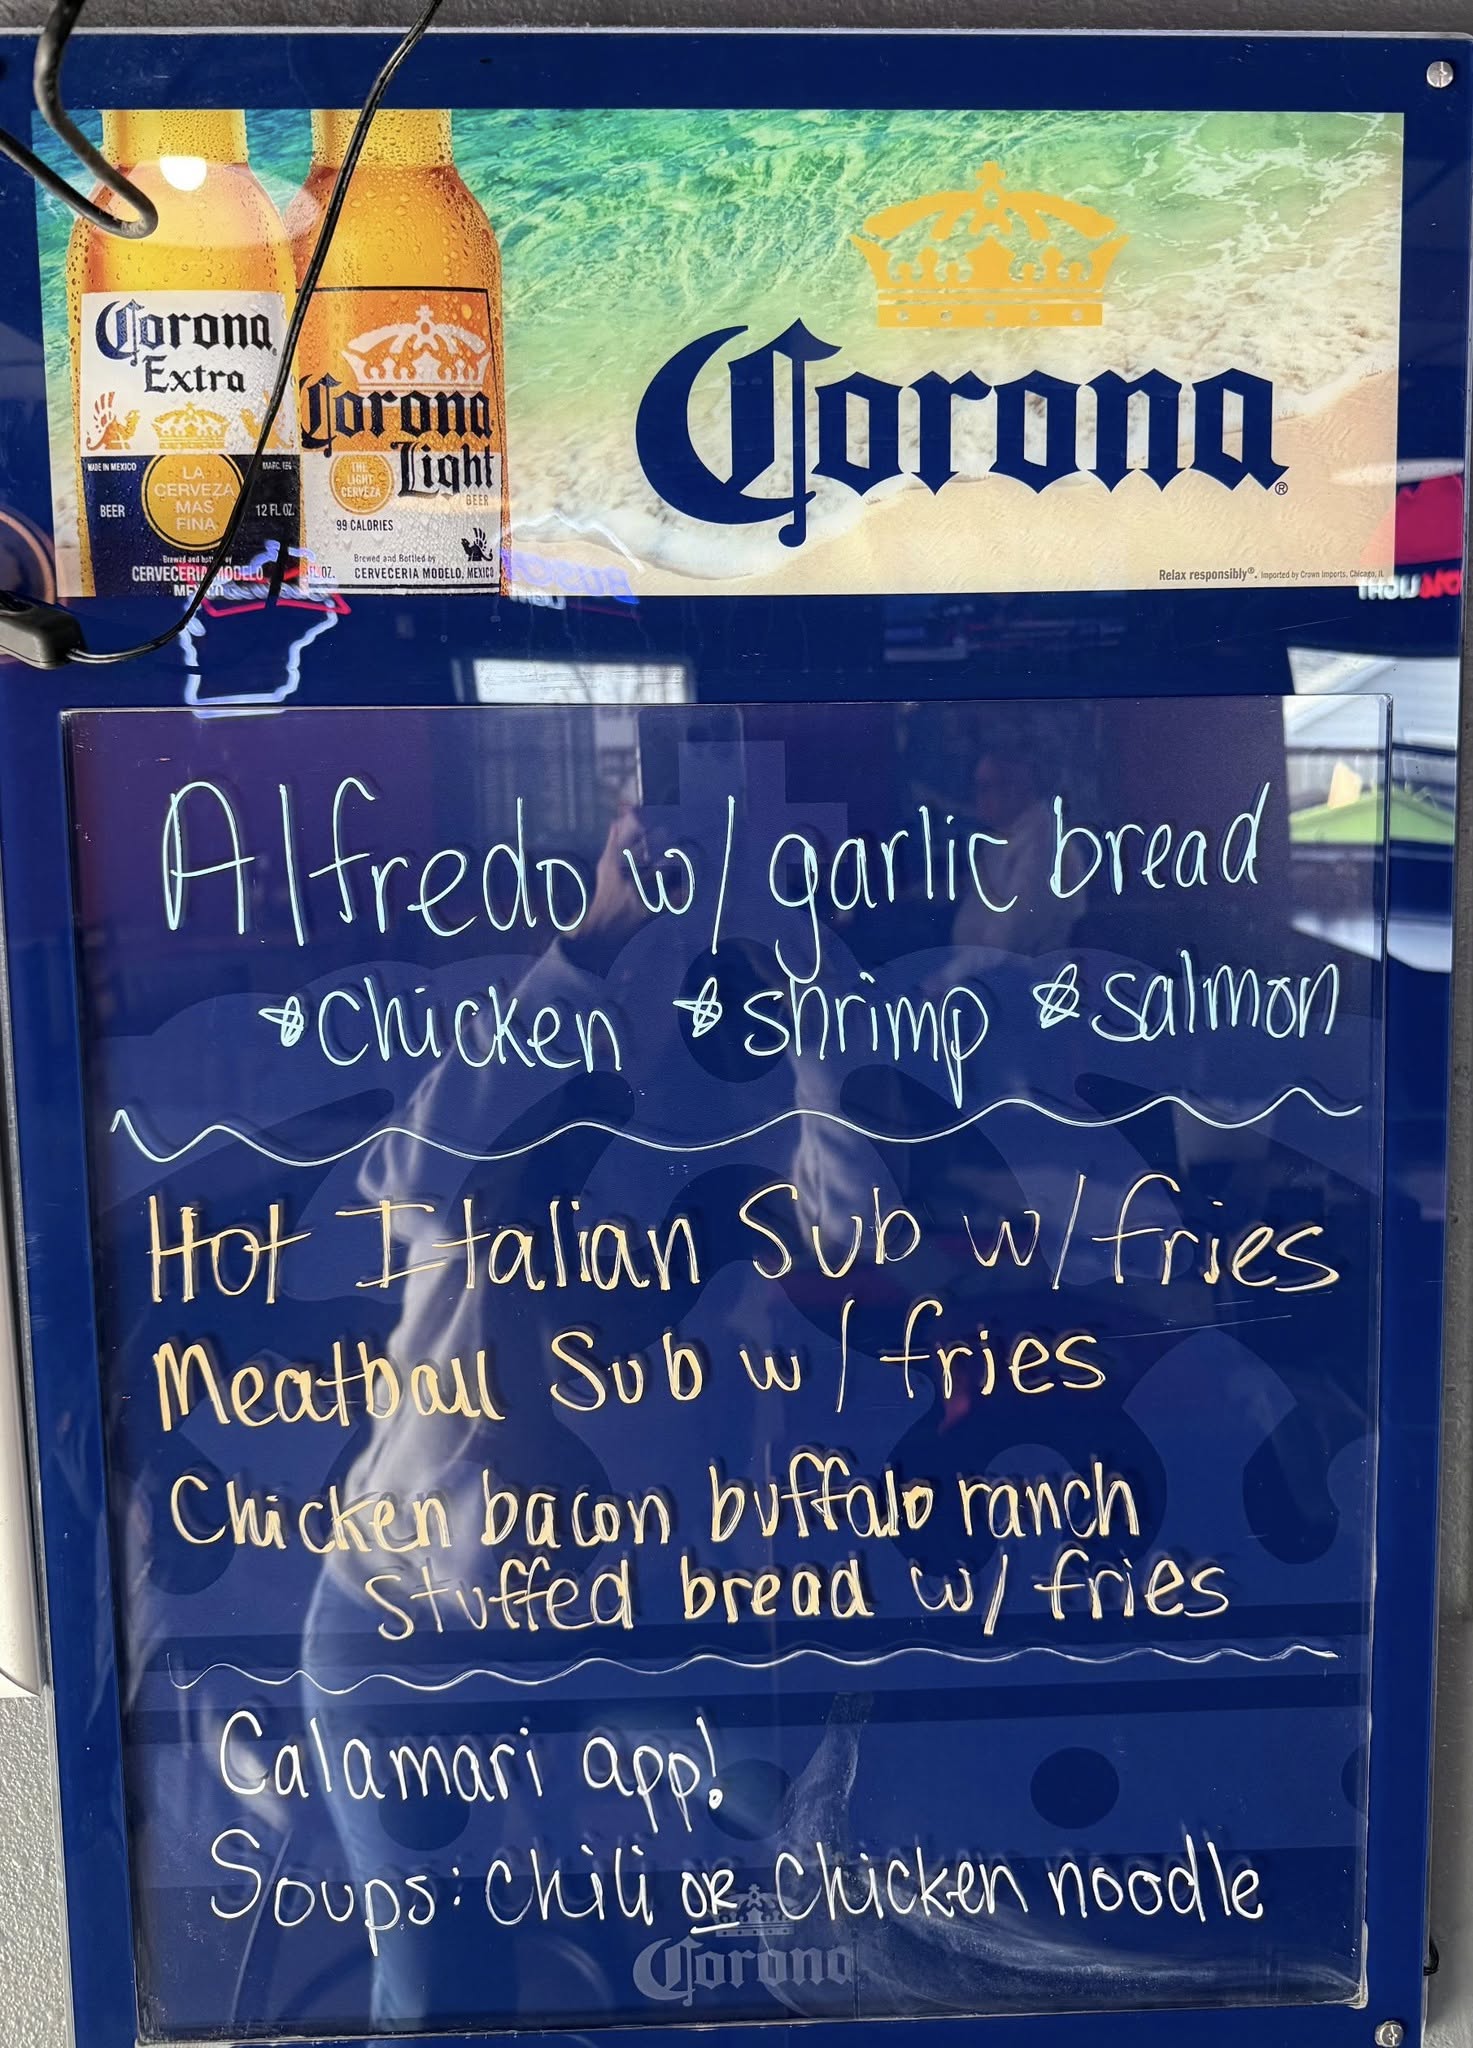 Corona
Extra
MADE IN MEXICO
LA
CERVEZA
MAS
FINA
BEER
12 FL. OZ.
Brewed and
CERVECERIA MODELO
Corona
Light
BEER
THE
LIGHT
CERVEZA
99 CALORIES
Brewed and Bottled by
CERVECERIA MODELO, MEXICO
Corona®
Relax responsibly®. Imported by Crown Imports, Chicago, IL
Alfredo w/ garlic bread
*chicken *shrimp *salmon
Hot Italian Sub w/ fries
Meatball Sub w/ fries
Chicken bacon buffalo ranch
stuffed bread w/ fries
Calamari app!
Soups: chili OR chicken noodle
Corona